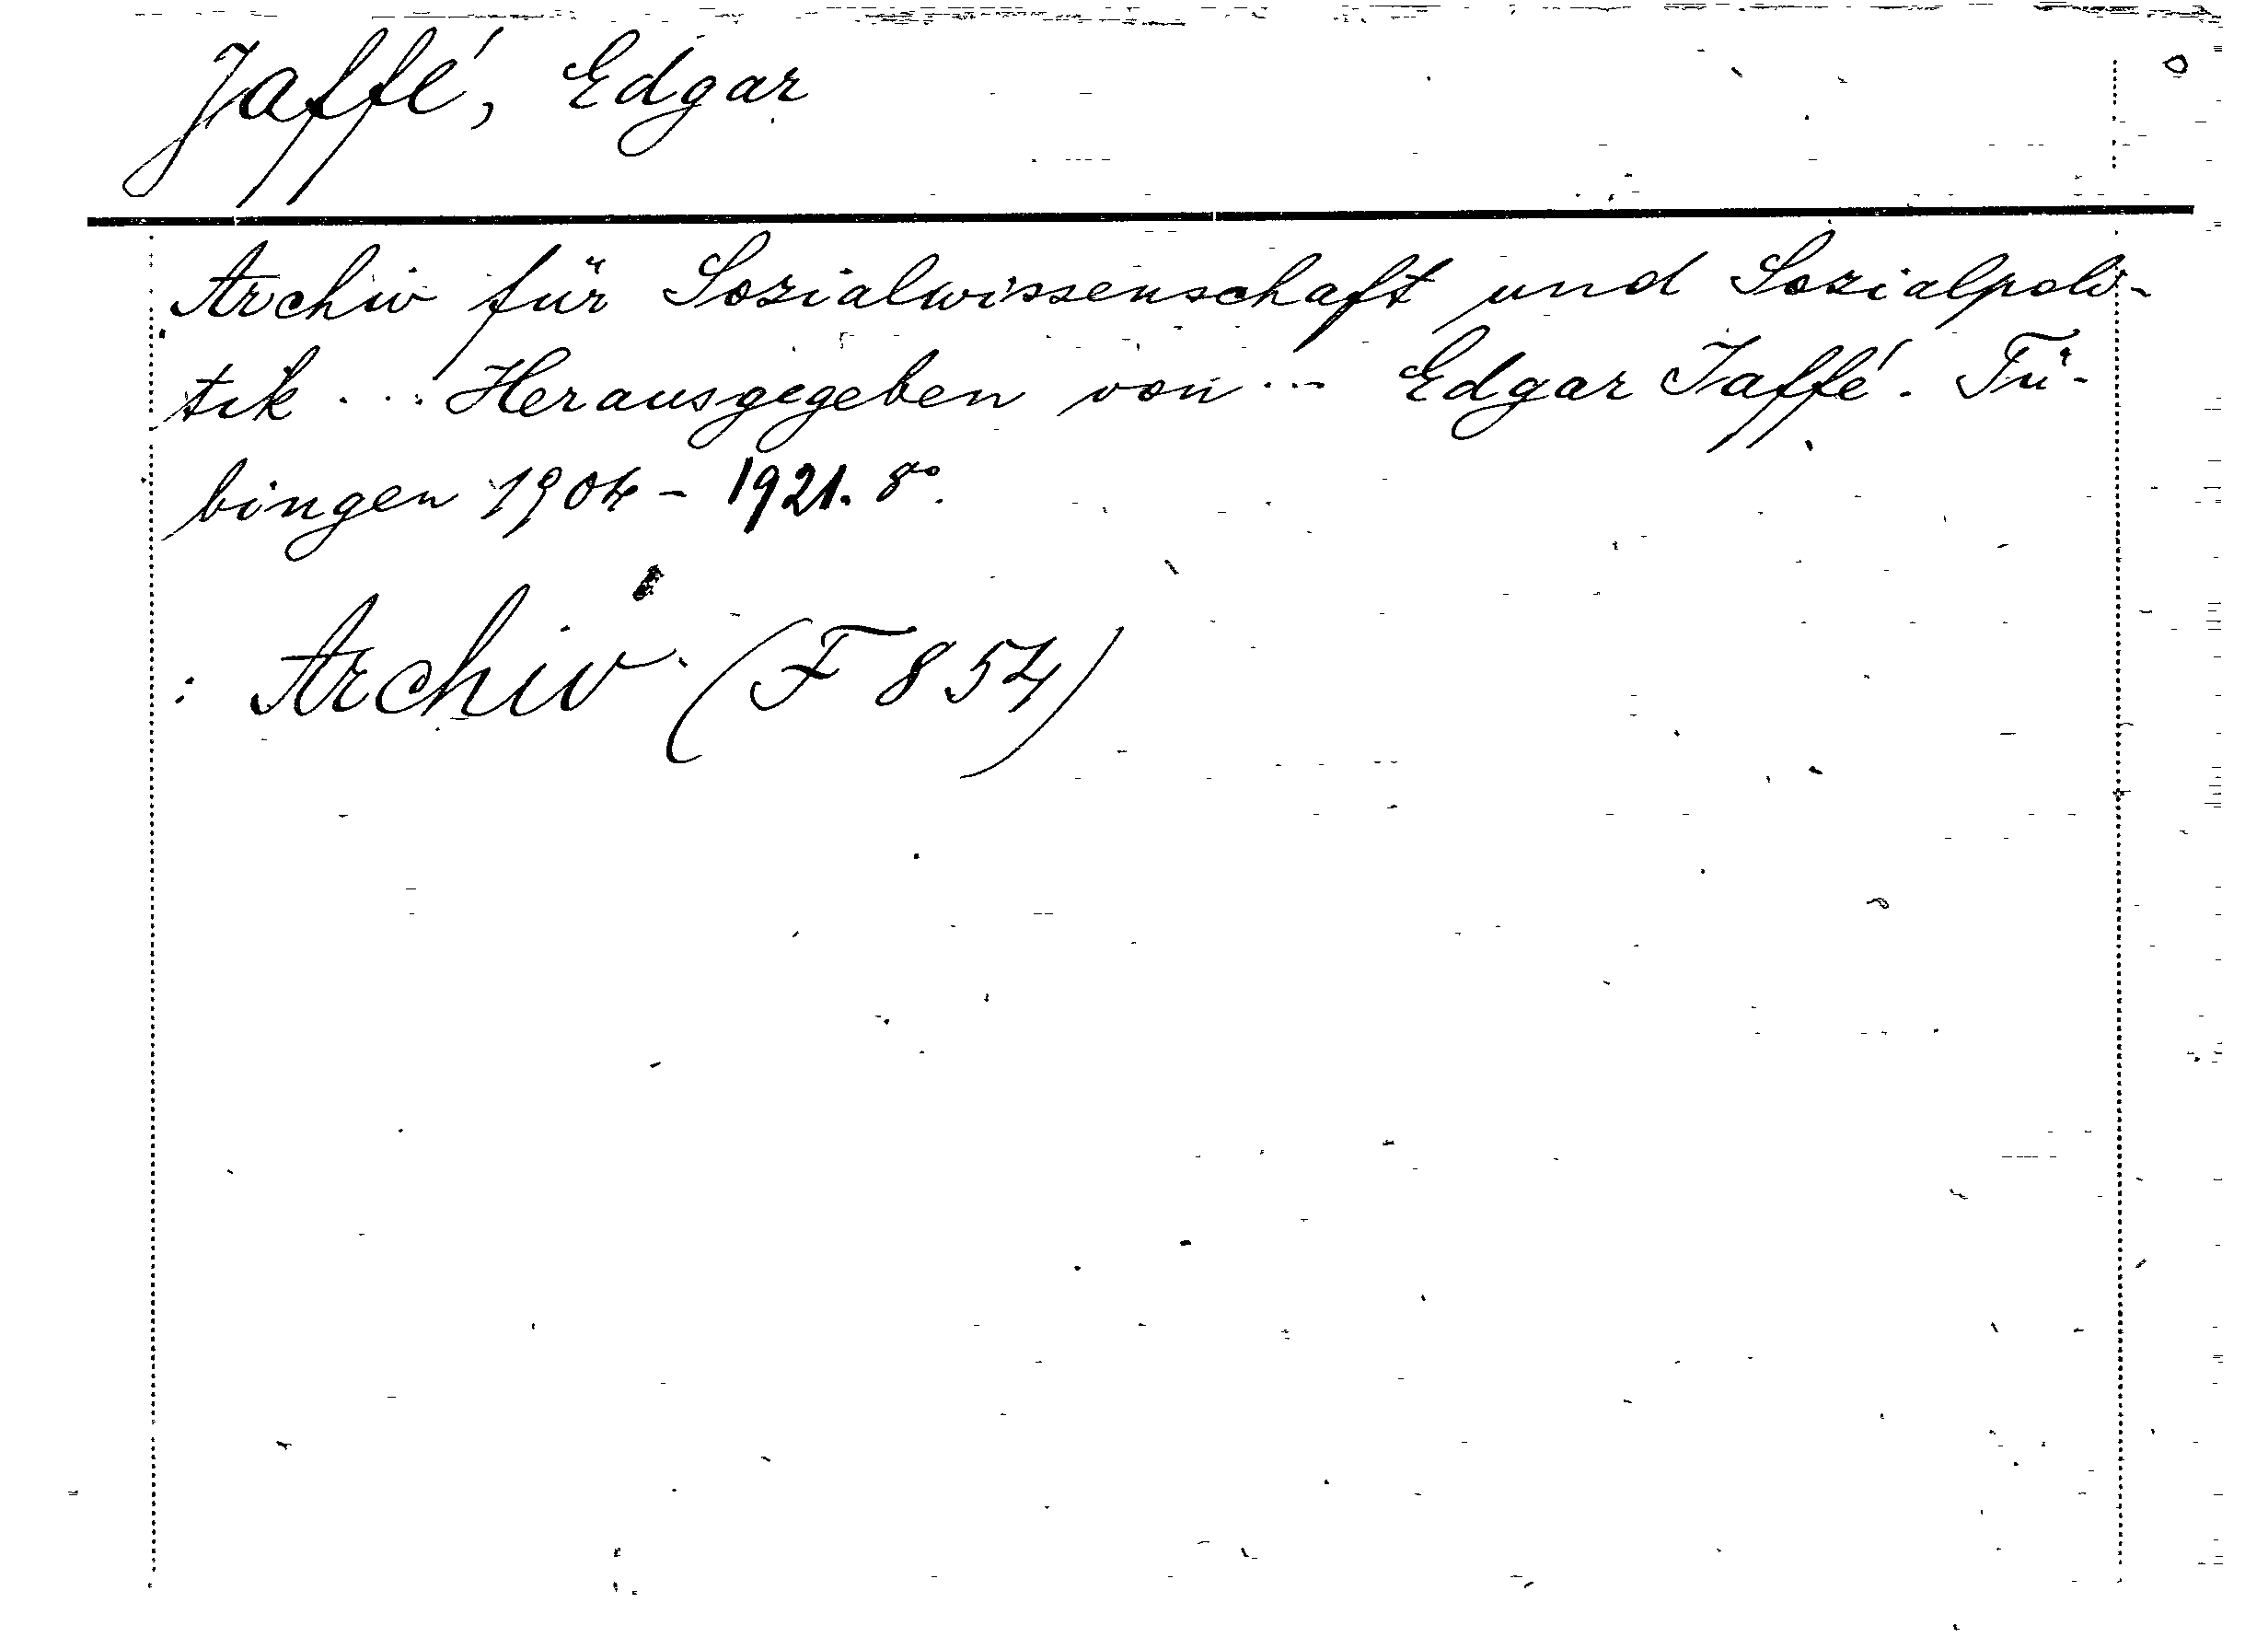 Jaffé, Edgar
Archiv für Sozialwissenschaft und Sozialpoli-
tik ... Herausgegeben von ... Edgar Jaffé. Tü-
bingen 1904 - 1921. 8°.
: Archiv (F 854)